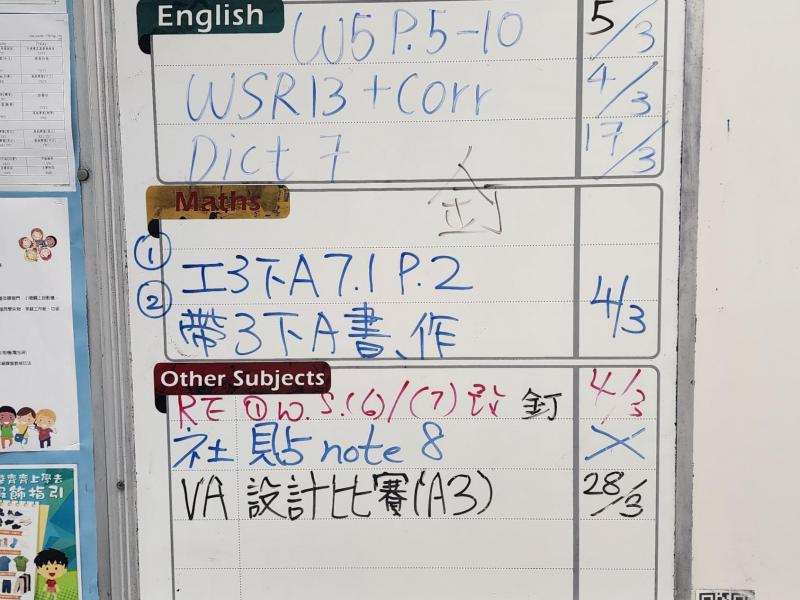 English
W5 P.5-10 5/3
WSR13 + Corr 4/3
Dict 7 17/3
釘
Maths
① 工3下A 7.1 P.2
② 帶3下A書、作 4/3
Other Subjects
RE ① W.S.(6)/(7) 釘 4/3
社 貼 note 8 ✗
VA 設計比賽(A3) 28/3